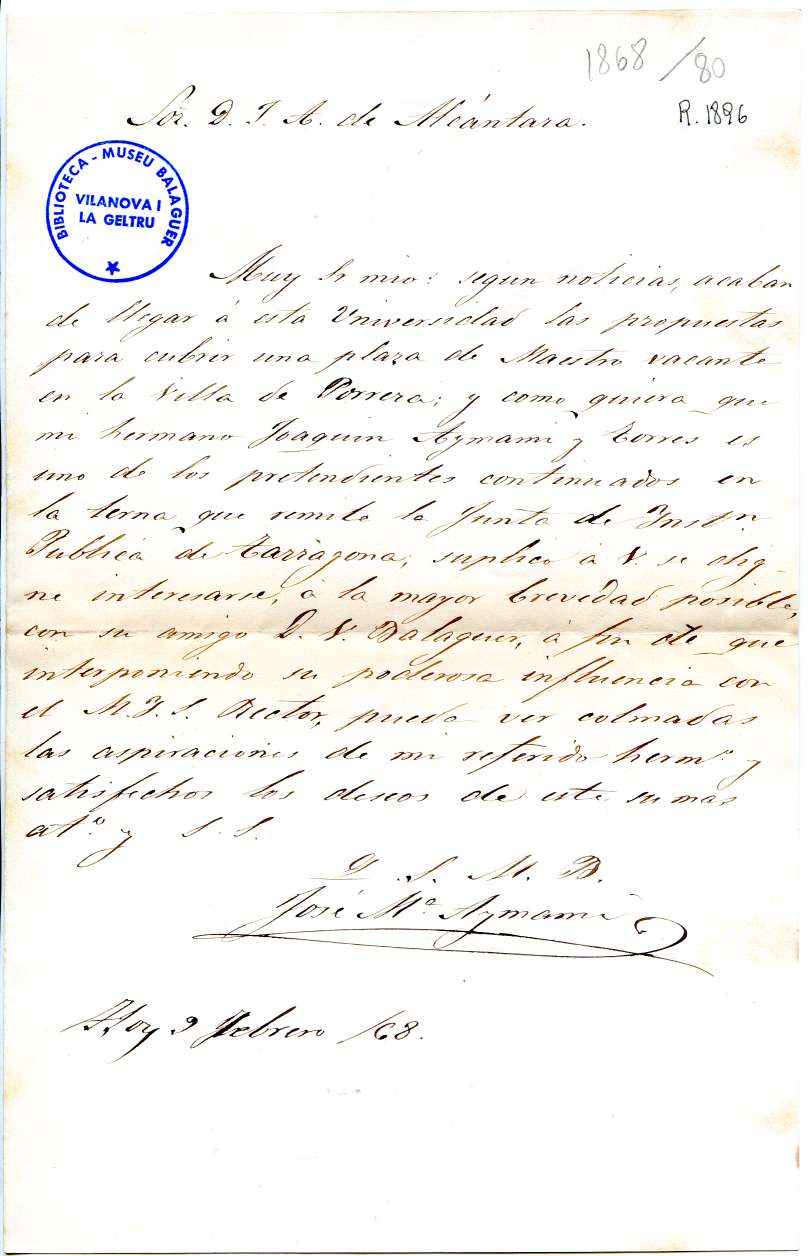 1868/80
Sor. D. J. A. de Alcántara.
R. 1896
BIBLIOTECA - MUSEU BALAGUER
VILANOVA I
LA GELTRU
Muy Sr mio: segun noticias, acaban
de llegar á esta Universidad las propuestas
para cubrir una plaza de Maestro vacante
en la Villa de Porrera; y como quiera que
mi hermano Joaquin Aymamí y Torres es
uno de los pretendientes continuados en
la terna que remite la Junta de Instn
Publica de Tarragona, suplico á V. se dig-
ne interesarse, á la mayor brevedad posible,
con su amigo D. V. Balaguer, á fin de que
interponiendo su poderosa influencia con
el M. I. S. Rector, pueda ver colmadas
las aspiraciones de mi referido hermo. y
satisfechos los deseos de este su mas
ato. y S. S.
Q. S. M. B.
José Ma. Aymamí
Hoy 9 Febrero /68.